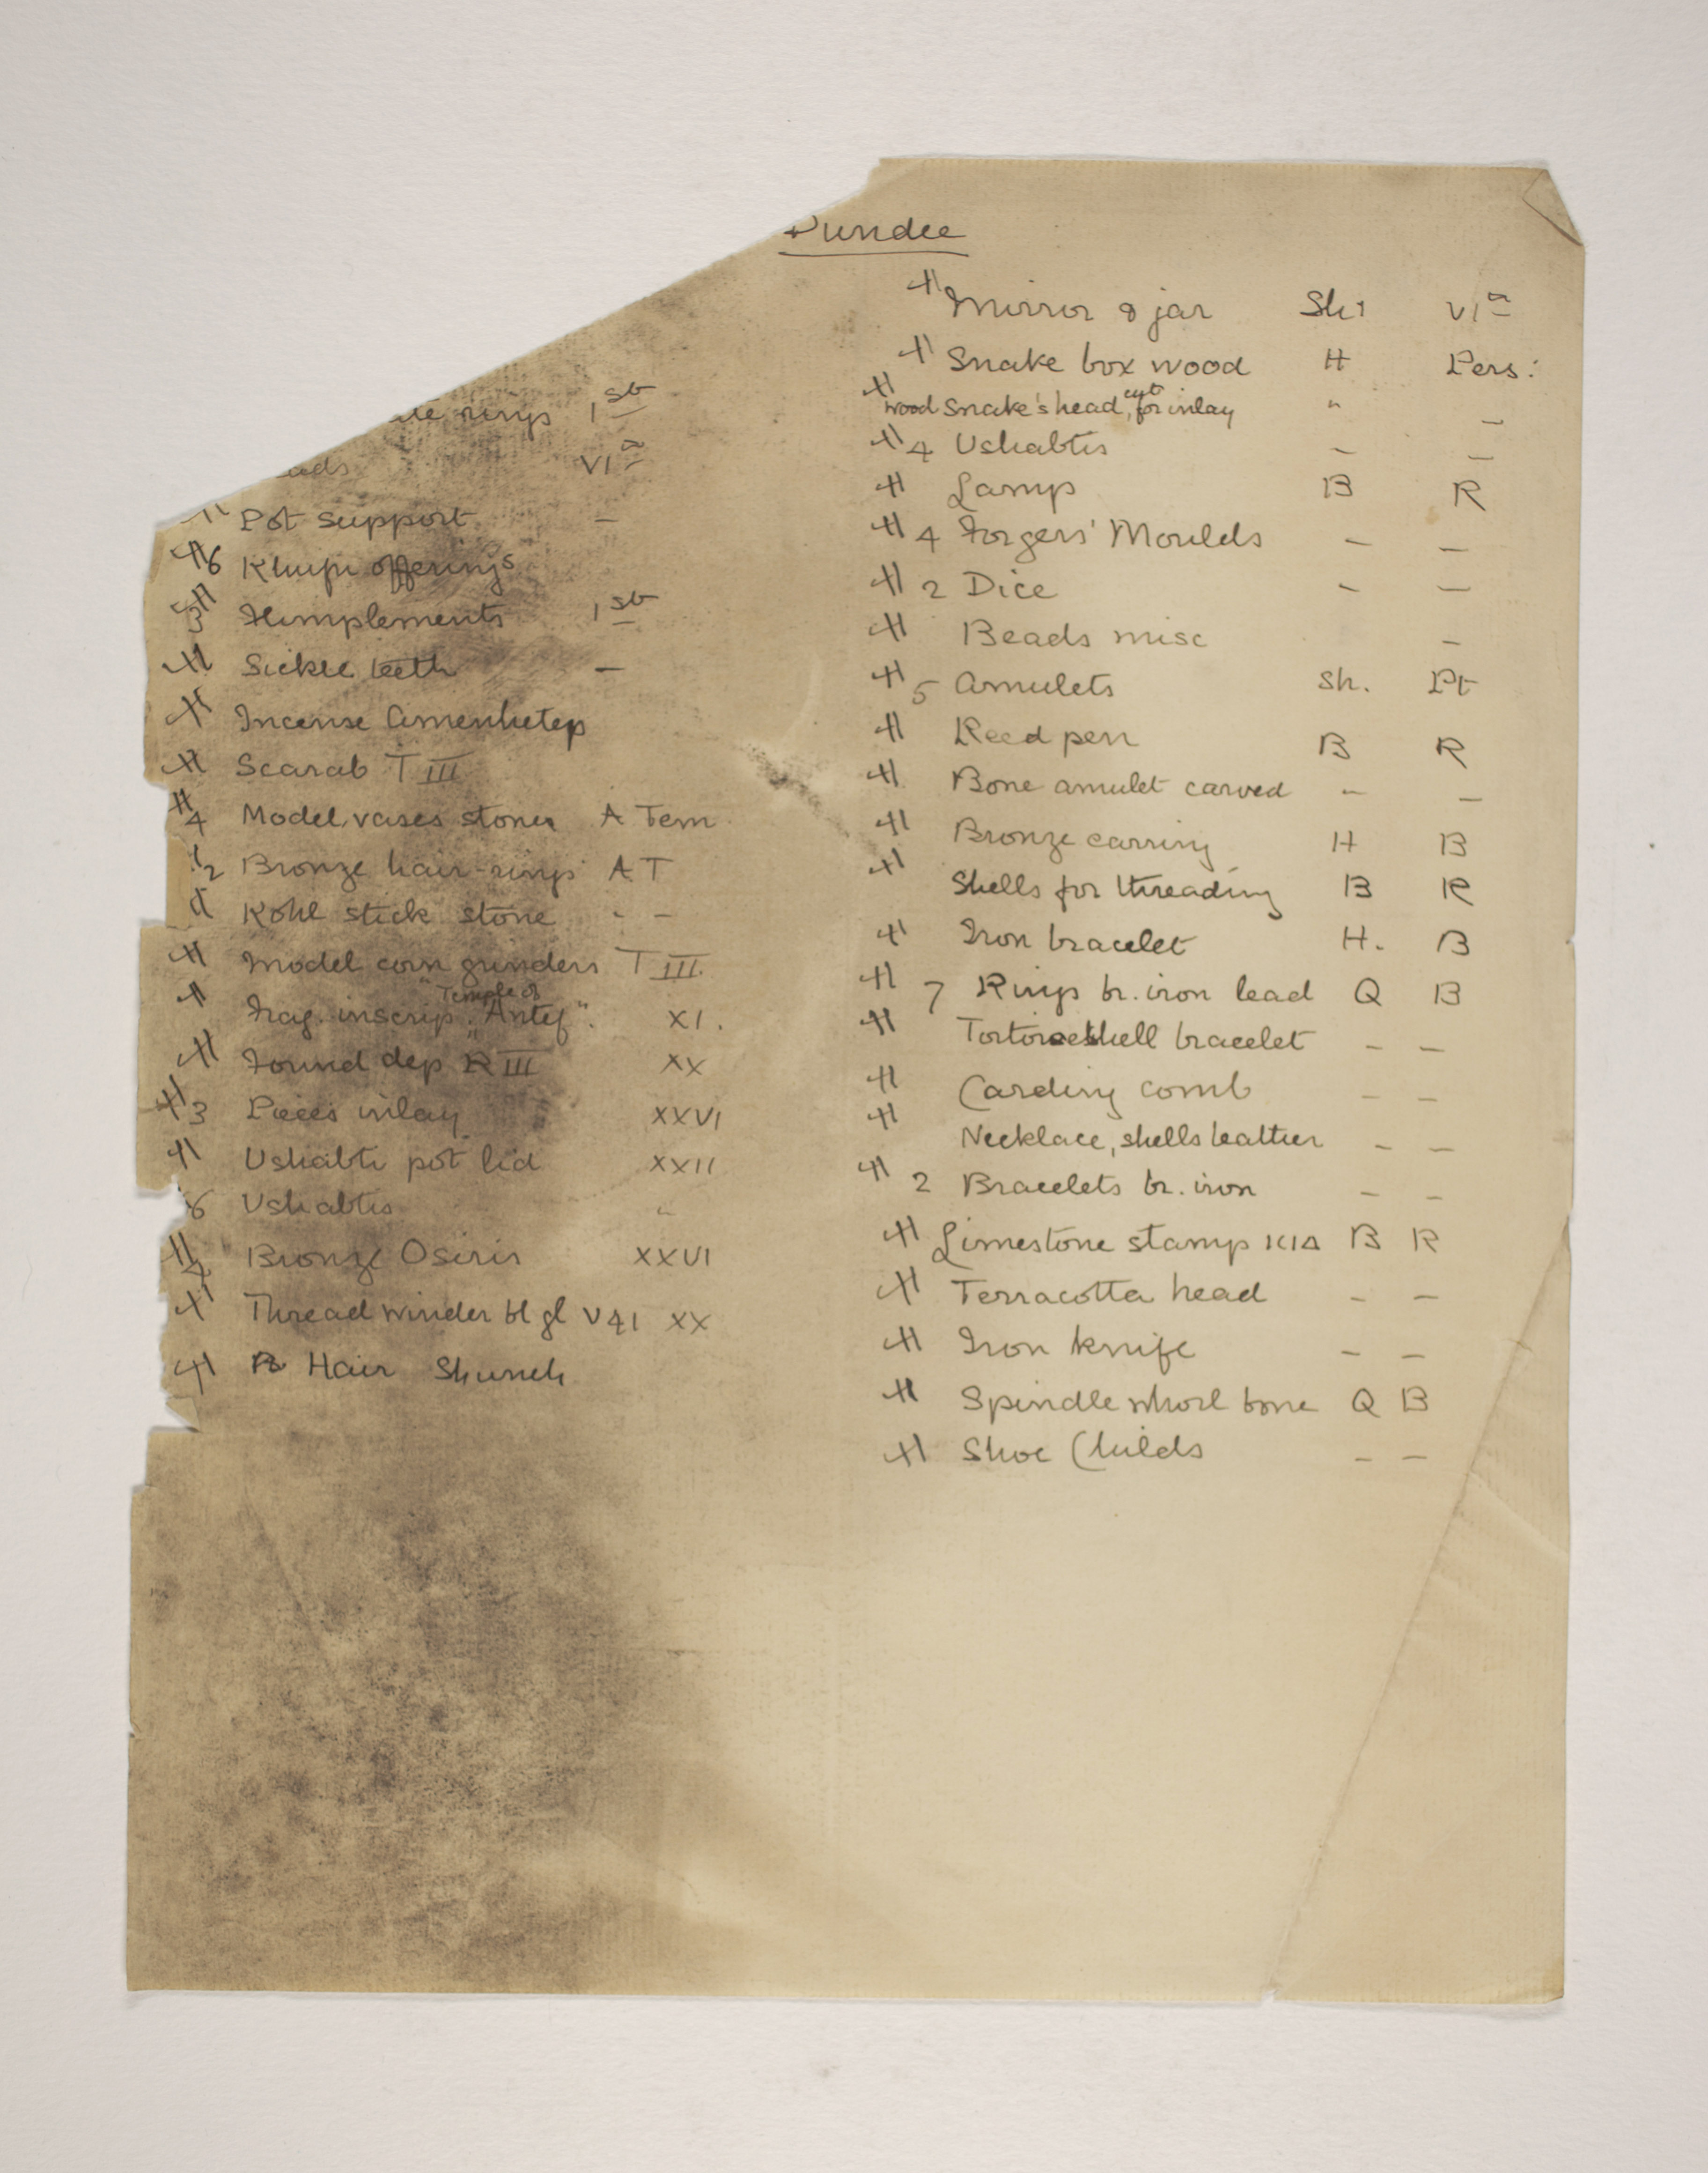 Dundee
rings 1st
VIth
Pot support –
6 Khufu offerings
3 Fl implements 1st
H Sickle teeth –
H Incense Amenhetep
H Scarab T III
H 4 Model vases stone A Tem.
2 Bronze hair-rings A T
Kohl stick stone - -
H Model corn grinders T III.
H Frag. inscrip. "Temple of Antef". XI.
H Found dep R III XX
H 3 Pieces inlay XXVI
H Ushabti pot lid XXII
6 Ushabtis "
H Bronze Osiris XXVI
H Thread winder bl gl V 41 XX
H Hair Shunch
H Mirror & jar Sh: VIth
H Snake box wood H Pers:
H wood Snake's head, cut for inlay " –
H 4 Ushabtis – –
H Lamp B R
H 4 Forgers' Moulds – –
H 2 Dice – –
H Beads misc –
H 5 Amulets Sh. Pt
H Reed pen B R
H Bone amulet carved – –
H Bronze earring H B
H Shells for threading B R
H Iron bracelet H. B
H 7 Rings br. iron lead Q B
H Tortoiseshell bracelet – –
H Carding comb – –
H Necklace, shells leather – –
H 2 Bracelets br. iron – –
H Limestone stamp KIA B R
H Terracotta head – –
H Iron knife – –
H Spindle whorl bone Q B
H Shoe Childs – –